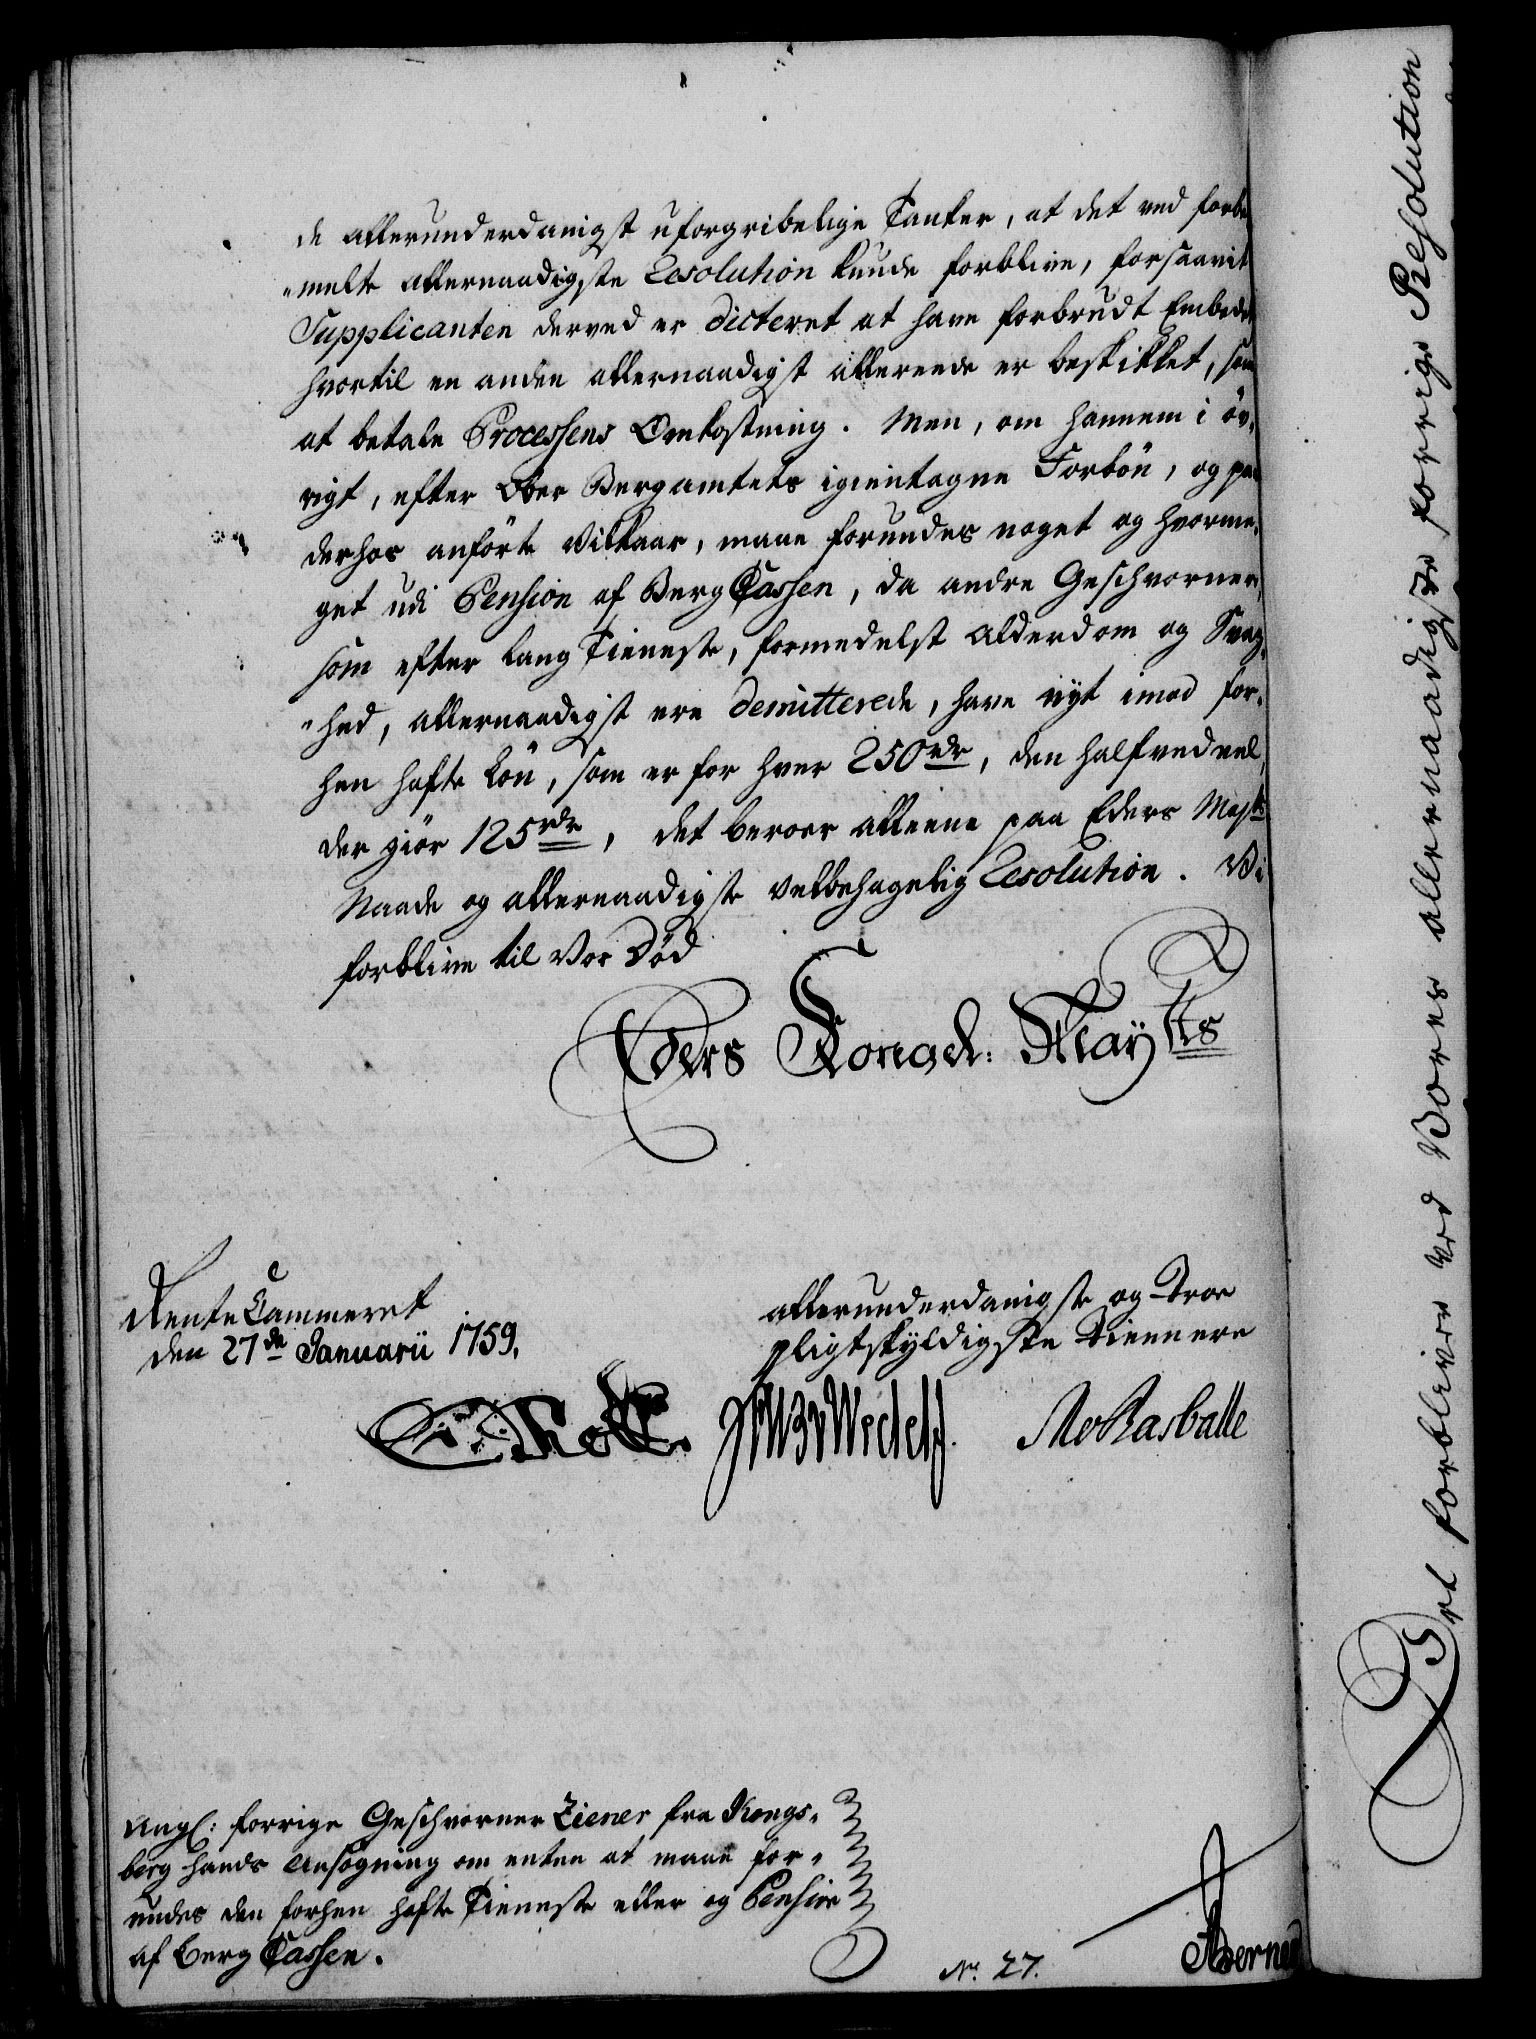 de allerunderdanigst uforgribelige Tanker, at det ved forbe
„melte allernaadigste Resolution kunde forblive, forsaavit
Supplicanten derved er dicteret at have forbrudt Embedet
hvortil en anden allernaadigst allereede er beskikket, som
at betale Processens Omkostning. Men, om hannem i öv„
rigt, efter Ober Bergamtets igientagne Forbön, og paa
derhos anförte Vilkaar, maae forundes noget og hvorme„
get udi Pension af Berg Cassen, da andre Geschvorner,
som efter lang Tieneste, formedelst Alderdom og Svag„
„hed, allernaadigst ere demitterede, have nyt imod for„
hen hafte Lön, som er for hver 250 rdr, den halfve deel,
der giör 125 rdr, det beroer alleene paa Eders Majts
Naade og allernaadigste velbehagelig Resolution. Vi
forblive til Vor Död
Eders Kongel: Mayts
Rente Cammeret
den 27de Januarii 1759.
allerunderdanigste og Troe
pligtskyldigste Tiennere
Wedel
Rasballe
Ang: forrige Geschvorner Ziener fra Kongs„
berg hands Ansögning om enten at maae for„
undes den forhen hafte Tieneste eller og Pension
af Berg Cassen.
No. 27.
Det forbliver ved Vores allernaadigste forrige Resolution